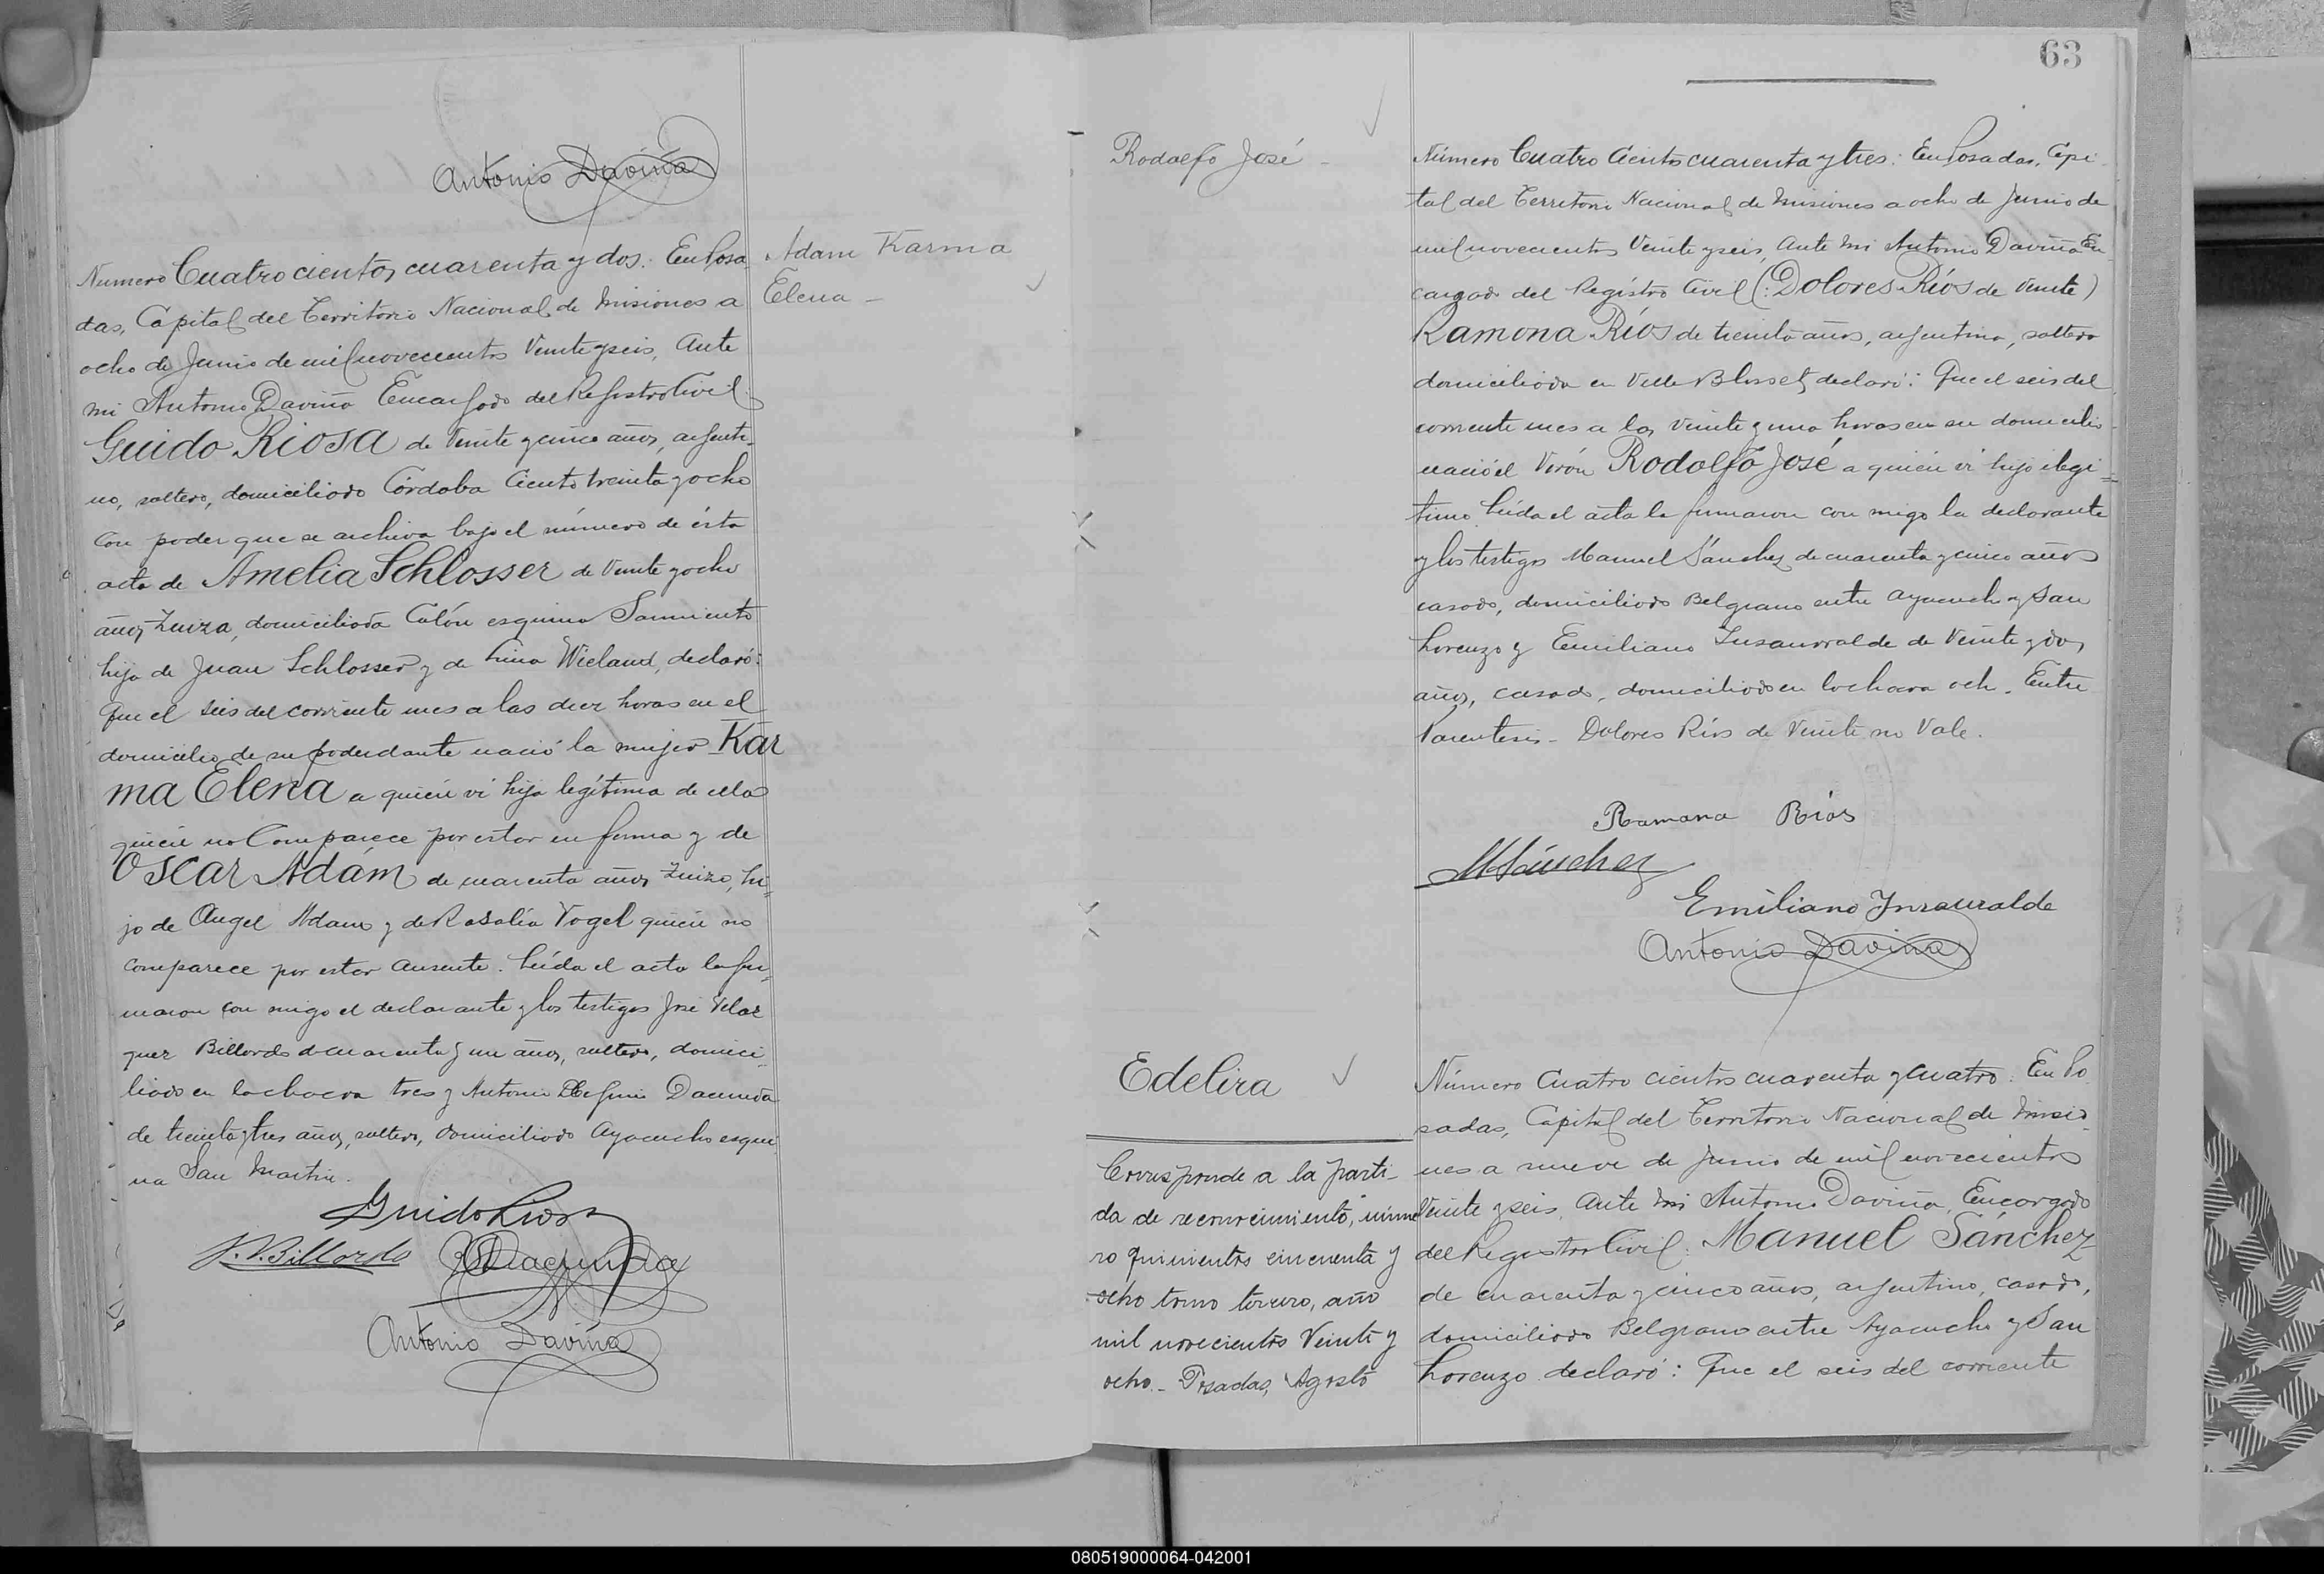 Antonio Daviña
Adam Karma
Elena -
Numero Cuatrocientos cuarenta y dos: En Posa-
das, Capital del Territorio Nacional de Misiones a
ocho de Junio de mil novecientos Veinte y seis, Ante
mi Antonio Daviña Encargado del Registro Civil:
Guido Riosa de Veinte y cinco años, argenti-
no, soltero, domiciliado Córdoba Ciento treinta y ocho
con poder que se archiva bajo el número de ésta
acta de Amelia Schlosser de Veinte y ocho
años, Zuiza, domiciliada Colón esquina Sarmiento
hija de Juan Schlosser y de Lina Wieland, declaró:
Que el seis del corriente mes a las diez horas en el
domicilio de su poderdante nació la mujer Kar
ma Elena a quien vi hija legítima de ella
quien no Comparece por estar enferma y de
Oscar Adám de cuarenta años, Zuizo, hi-
jo de Angel Adam y de Rosalía Vogel quien no
comparece por estar ausente. Leída el acta la fir-
maron con migo el declarante y los testigos José Velaz
quez Billordo de cuarenta y un años, soltero, domici-
liado en la chacra tres y Antonio Dacunda
de treinta y tres años, soltero, domiciliado Ayacucho esqui-
na San Martin.
Guido Riosa
J. V. Billordo Dacunda
Antonio Daviña
63
Rodolfo José -
Número Cuatro Cientos cuarenta y tres: En Posadas, Capi-
tal del Territorio Nacional de Misiones a ocho de Junio de
mil novecientos Veinte y seis, Ante mi Antonio Daviña En-
cargado del Registro Civil (: Dolores Ríos de Veinte)
Ramona Ríos de treinta años, argentina, soltera
domiciliada en Villa Blosset, declaró: Que el seis del
corriente mes a las veinte y una horas en su domicilio
nació el Varón Rodolfo José a quien vi hijo ilegi=
timo. Leída el acta la firmaron con migo la declarante
y los testigos Manuel Sánchez de cuarenta y cinco años
casado, domiciliado Belgrano entre Ayacucho y San
Lorenzo y Emiliano Insaurralde de Veinte y dos
años, casado, domiciliado en la chacra och. Entre
Parentesis - Dolores Ríos de Veinte no Vale.
Ramona Ríos
M Sánchez
Emiliano Insauralde
Antonio Daviña
Edelira
Corresponde a la parti-
da de reconocimiento, núme
ro quinientos cincuenta y
ocho tomo tercero, año
mil novecientos Veinte y
ocho.- Posadas, Agosto
Número Cuatro cientos cuarenta y cuatro: En Po
sadas, Capital del Territorio Nacional de Misio-
nes a nueve de Junio de mil novecientos
Veinte y seis, Ante mi Antonio Daviña, Encargado
del Registro Civil: Manuel Sánchez
de cuarenta y cinco años, argentino, casado,
domiciliado Belgrano entre Ayacucho y San
Lorenzo declaró: Que el seis del corriente
080519000064-042001